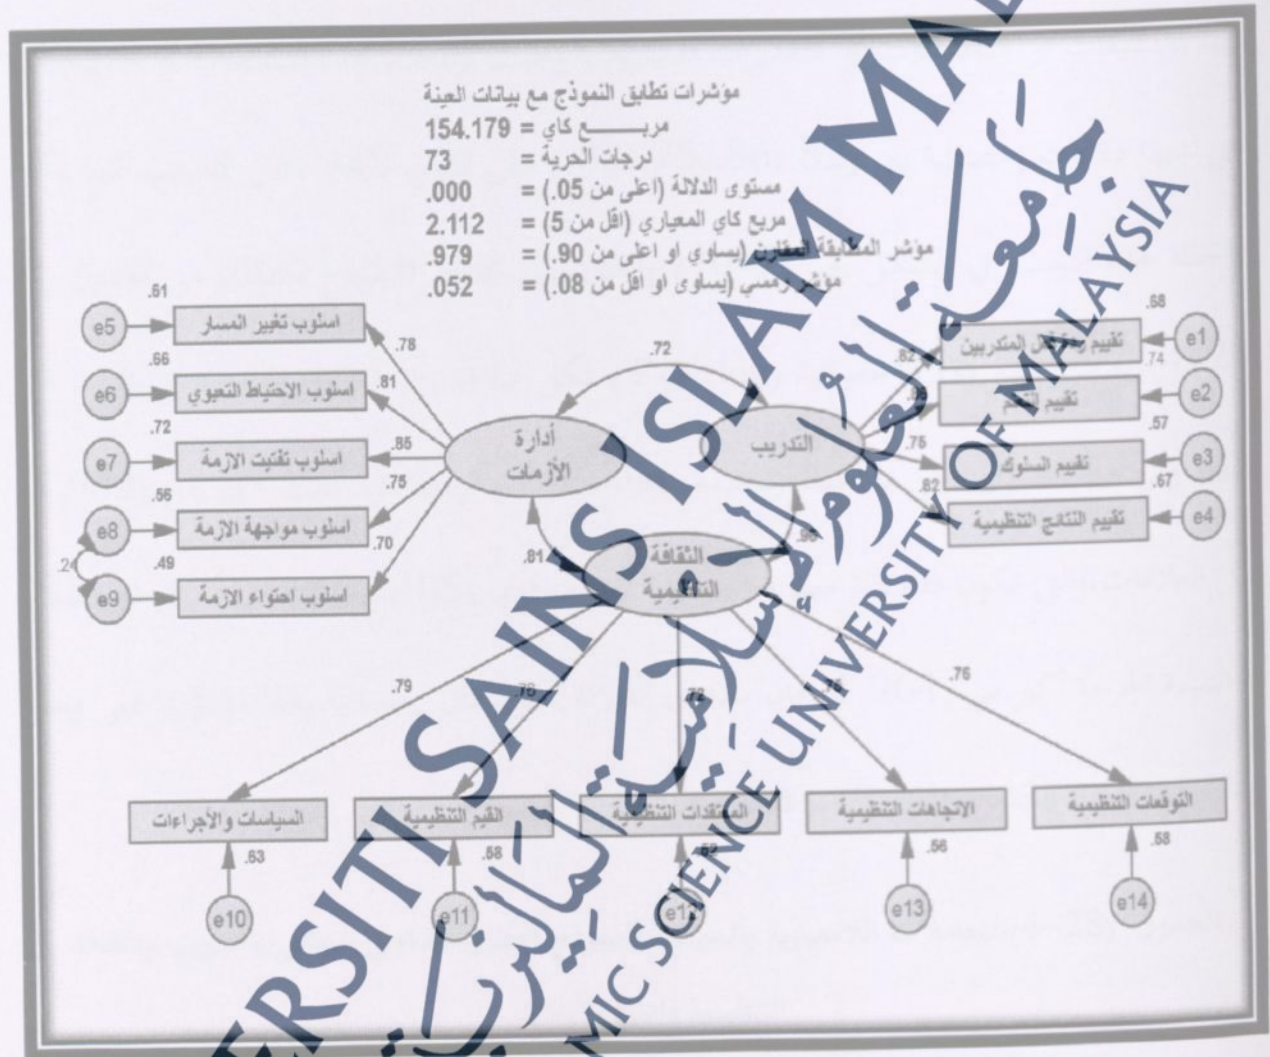 مؤشرات تطابق النموذج مع بيانات العينة
مربـــــع كاي = 154.179
درجات الحرية = 73
مستوى الدلالة (اعلى من 05.) = .000
مربع كاي المعياري (اقل من 5) = 2.112
مؤشر المطابقة المقارن (يساوي او اعلى من 90.) = .979
مؤشر رمسي (يساوى او اقل من 08.) = .052
.61
e5 اسلوب تغيير المسار .78
.66
e6 اسلوب الاحتياط التعبوي .81
.72
e7 اسلوب تفتيت الازمة .85
.56
e8 اسلوب مواجهة الازمة .75
.49
e9 اسلوب احتواء الازمة .70
أدارة
الأزمات
.72
التدريب
.68
.82 تقييم المتدربين e1
.74
تقييم التعلم e2
.57
.75 تقييم السلوك e3
.67
.82 تقييم النتائج التنظيمية e4
.81
الثقافة
التنظيمية
.79
.76
السياسات والأجراءات
القيم التنظيمية
المعتقدات التنظيمية
الاتجاهات التنظيمية
التوقعات التنظيمية
.63
.58
.52
.56
.58
e10
e11
e12
e13
e14
SAINS ISLAM
جامعة العلوم الإسلامية الماليزية
SCIENCE UNIVERSITY OF MALAYSIA